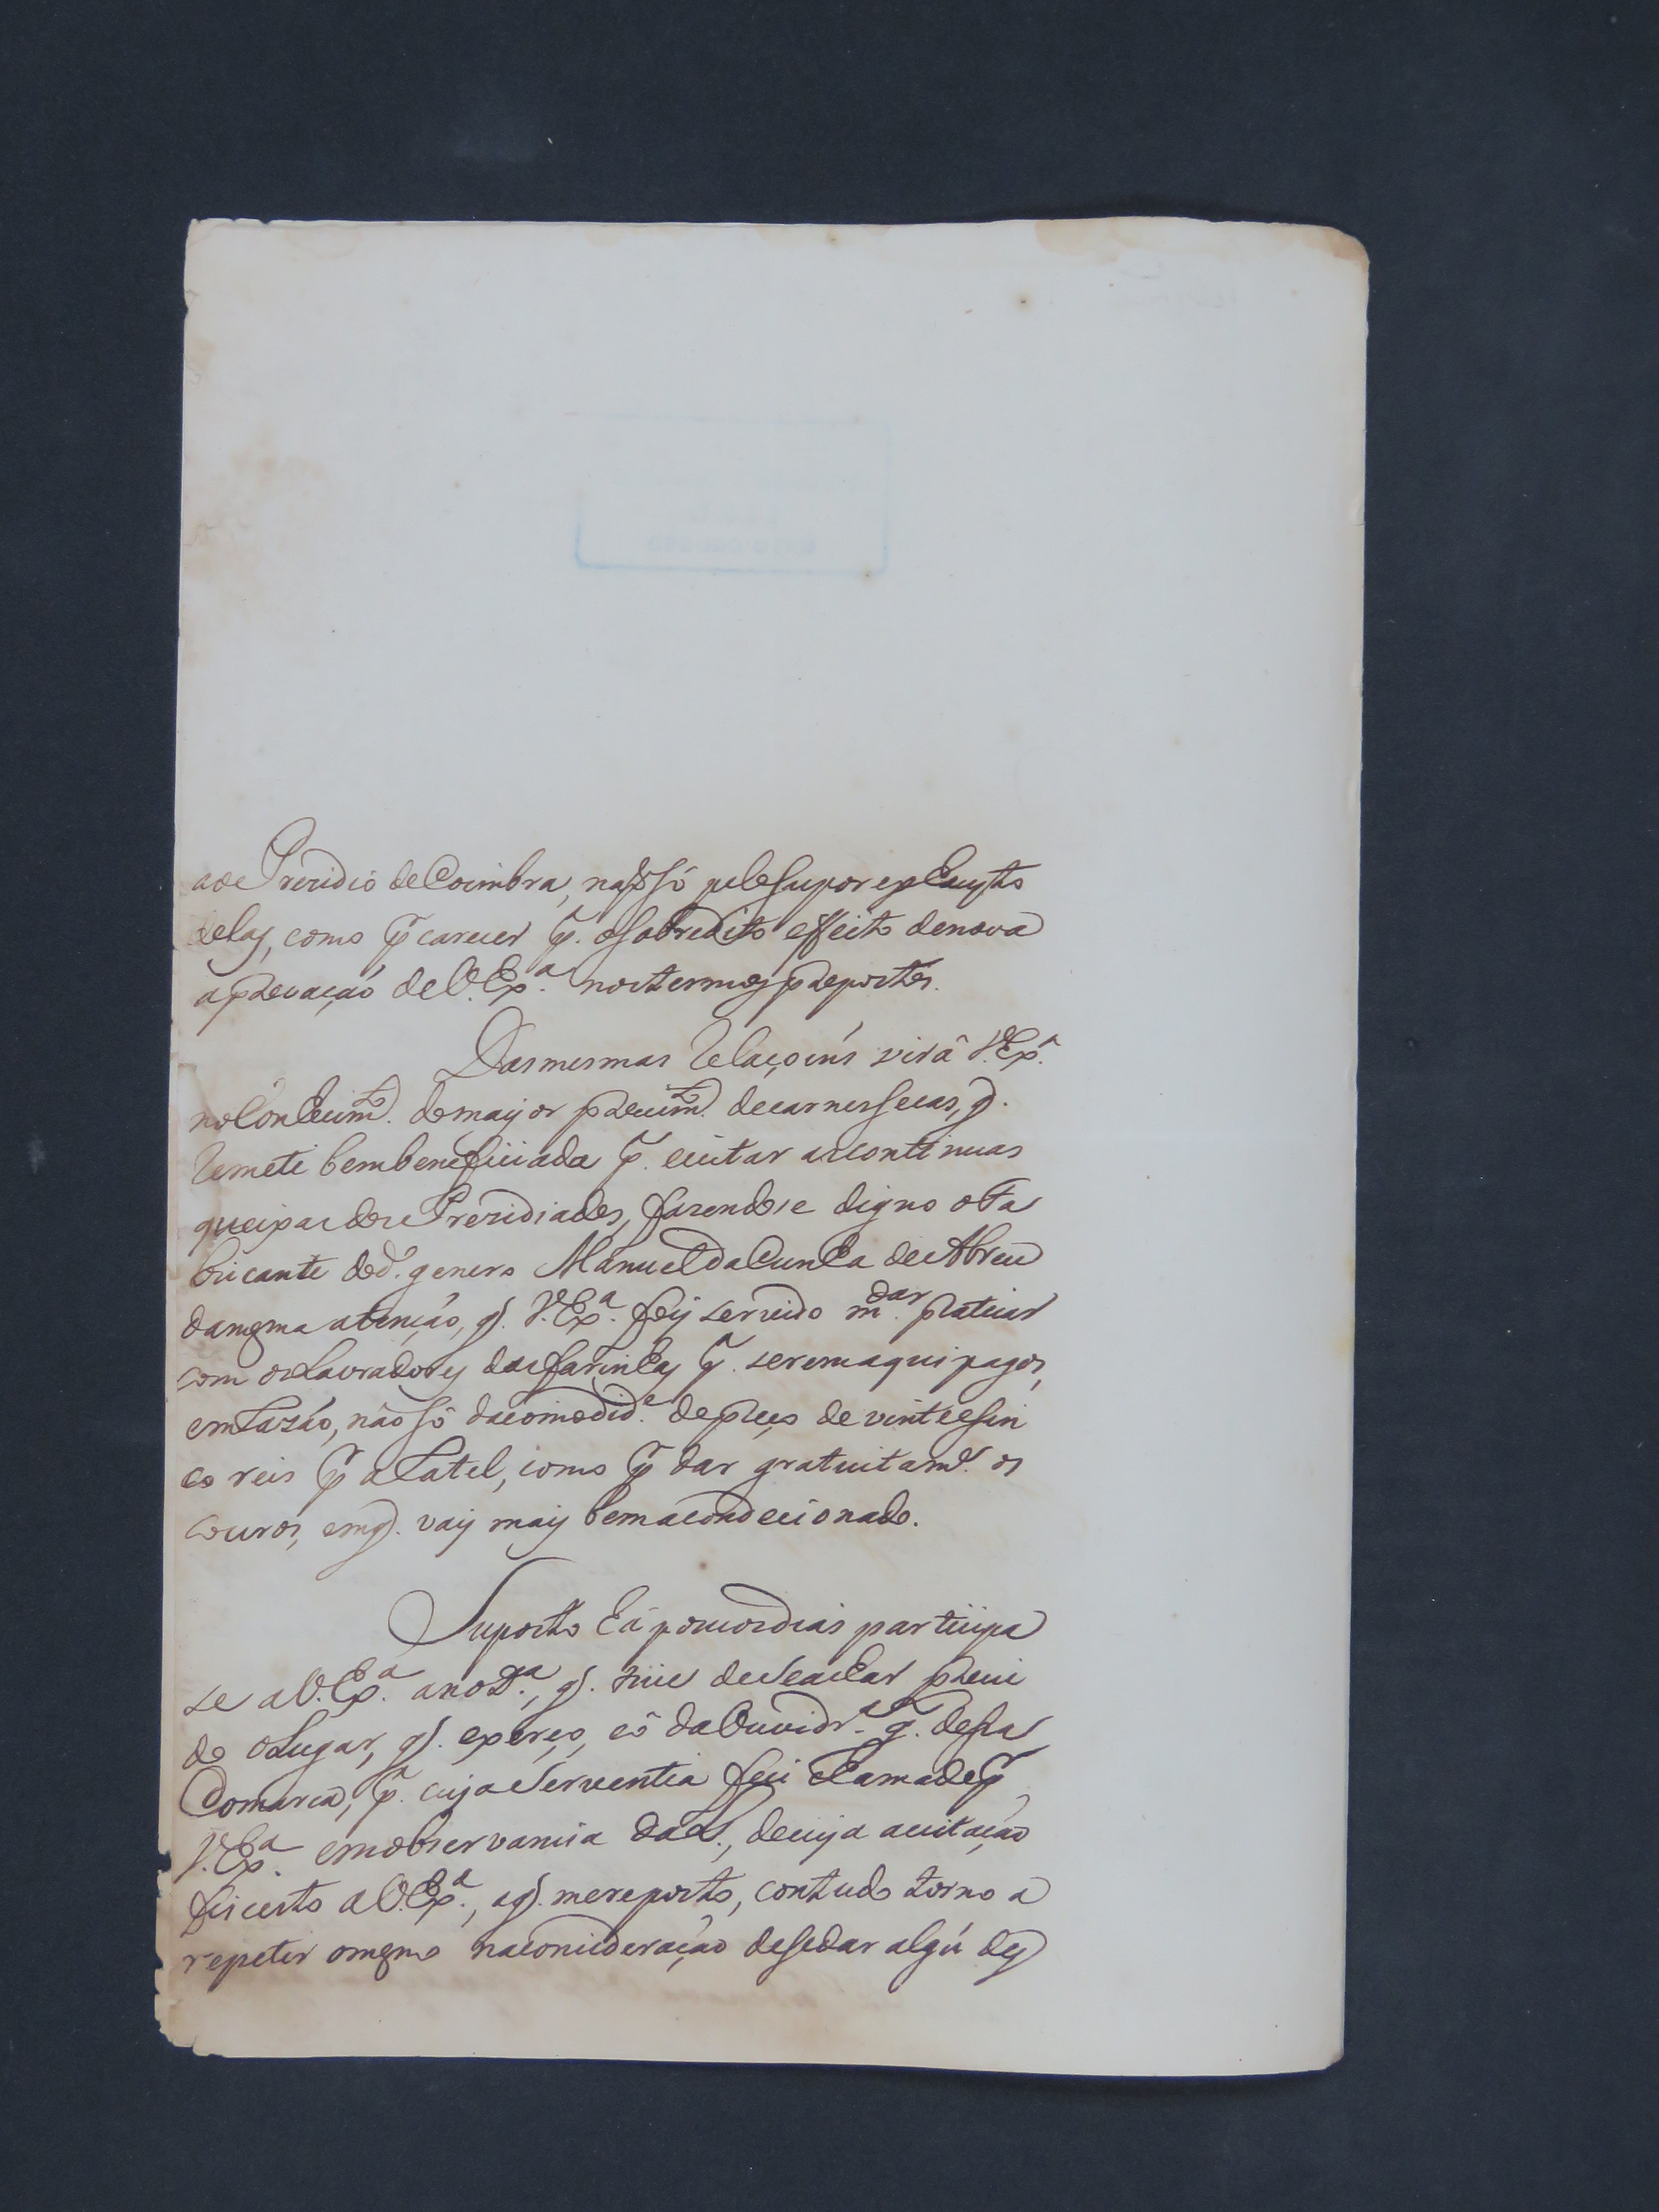 aos Prezidio de Coimbra, nasó pelo supor exhausto
delas, como p.ª carecer p.ª o sobredito effeito de nova
aprovação de V. Ex.ª nos termos propostos.
Das mesmas Relaçoins virâ V. Ex.ª
no Conhecim.to do mayor provim.to de carnes secas, q.
Remeti bem beneficiada p.ª evitar as continuas
queixas dos Prezidiados, fazendose digno o Fa
bricante do d.º genero Manuel da Cunha de Abreu
da mesma atenção, q. V. Ex.ª foy servido m.dar praticar
com os Lavradores das farinhas p.ª serem aqui pagos,
em Razão, não só da comodid.e do preço de vinte e sin
co reis p.r aRatel, como p.r dar gratuitam.e os
couros, em q. vay may bem acondecionado.
Suposto há poucos dias participa
se a V. Ex.ª a not.ª, q. tive de se achar provi
do o Lugar, q. exerço, e o da Ouvidr.ª g.l desta
Comarca, p.ª cuja Serventia fui chamado p.r
V. Ex.ª em observancia da L., de cuja aceitação
fis certo a V. Ex.ª, a q. me reporto, contudo torno a
repetir o mesmo na concideração de se dar algũ des